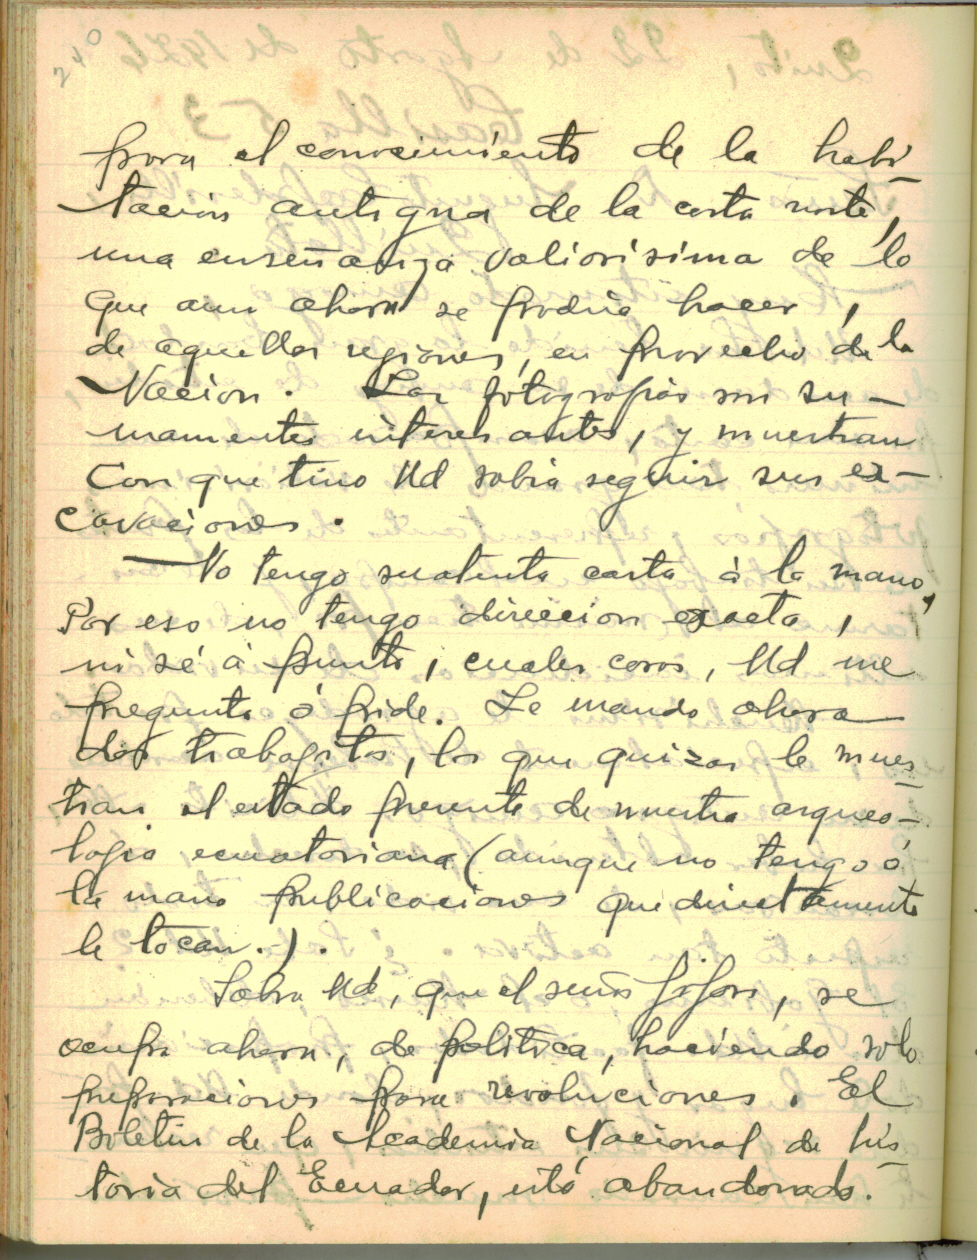 240
para el conocimiento de la habi-
tación antigua de la costa norte,
una enseñanza valiorisima de lo
que aun ahora se podria hacer,
de aquellas regiones, en provecho de la
Nacion. Las fotografias son su-
mamentes interesantes, y muestran
Con que tino Ud sabia seguir sus ex-
cavaciones.
No tengo su atenta carta à la mano,
Por eso no tengo direccion exacta,
ni sé á punto, cuales cosas, Ud me
pregunta ó pide. Le mando ahora
dos trabajitos, los que quizas le mues-
tran el estado presente de nuestra arqueo-
logia ecuatoriana (aunque no tengo á
la mano publicaciones que directamente
le tocan.).
Sabra Ud, que el señor Jijon, se
ocupa ahora, de politica, haciendo solo
preparaciones para revoluciones. El
Boletin de la Academia Nacional de his-
toria del Ecuador, está abandonado.